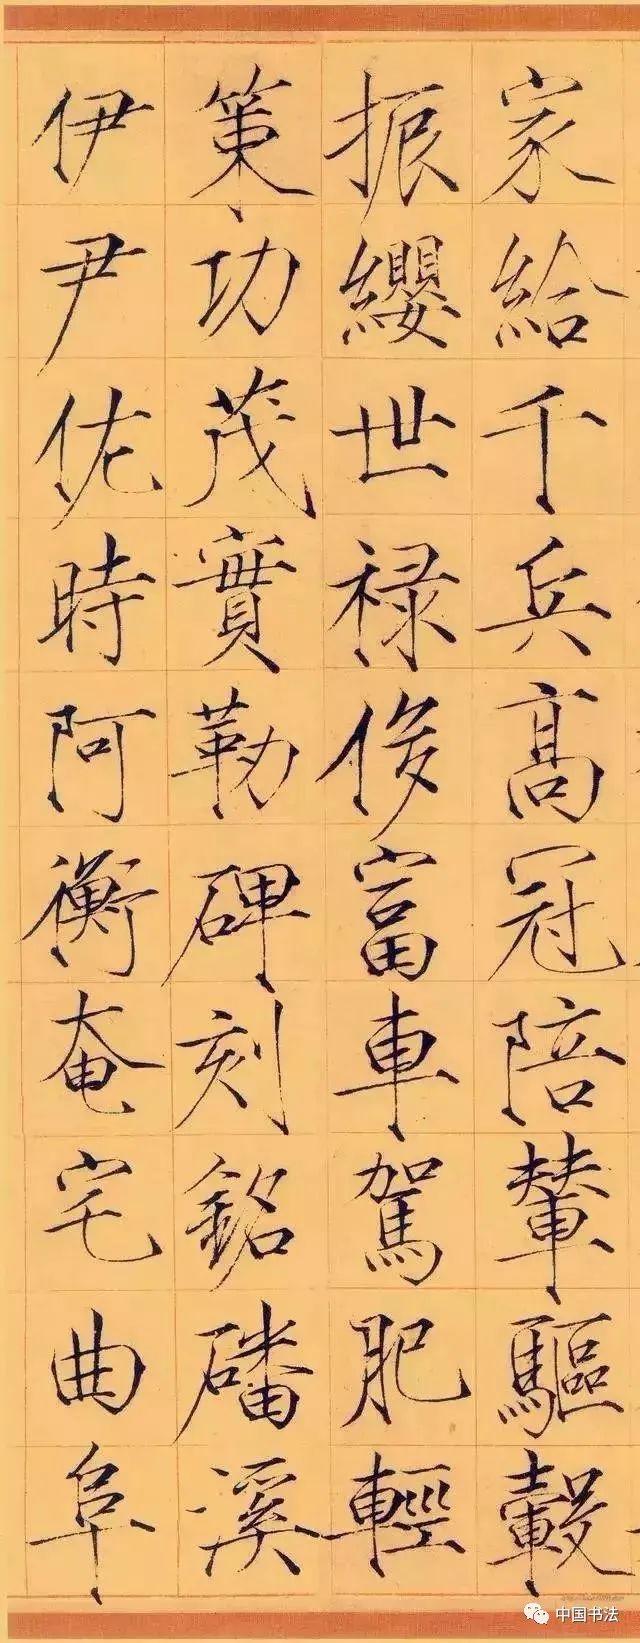 家給千兵高冠陪輦驅轂
振纓世禄侈富車駕肥輕
策功茂實勒碑刻銘磻溪
伊尹佐時阿衡奄宅曲阜
中国书法